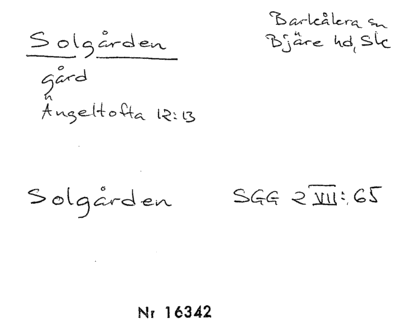 Solgården
Barkåkra sn
Bjäre hd, Sk
gård
Ängeltofta 12:13
Solgården SGG 2 VII: 65
Nr 16342